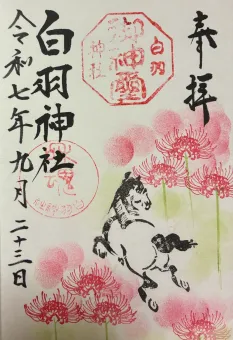 奉拝
白羽
御神璽
神社
白羽神社
令和七年九月二十三日